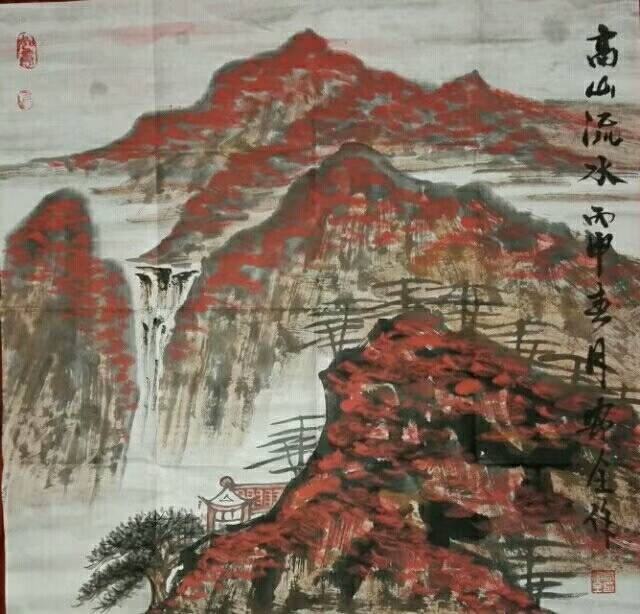 高山流水 丙申春月
金作